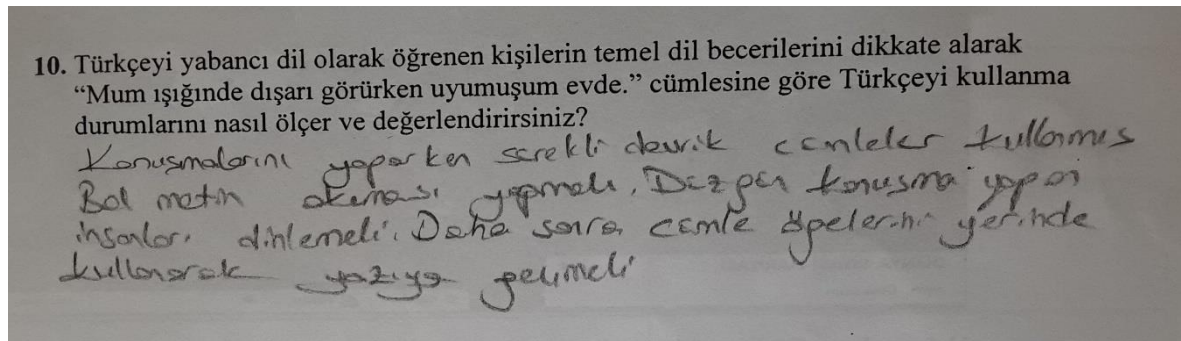 10. Türkçeyi yabancı dil olarak öğrenen kişilerin temel dil becerilerini dikkate alarak
“Mum ışığınde dışarı görürken uyumuşum evde.” cümlesine göre Türkçeyi kullanma
durumlarını nasıl ölçer ve değerlendirirsiniz?
Konuşmalarını yaparken sürekli devrik cümleler kullanmış
Bol metin okuması yapmalı. Düzgün konuşma yapan
insanları dinlemeli. Daha sonra cümle öğelerini yerinde
kullanarak yazıya geçmeli